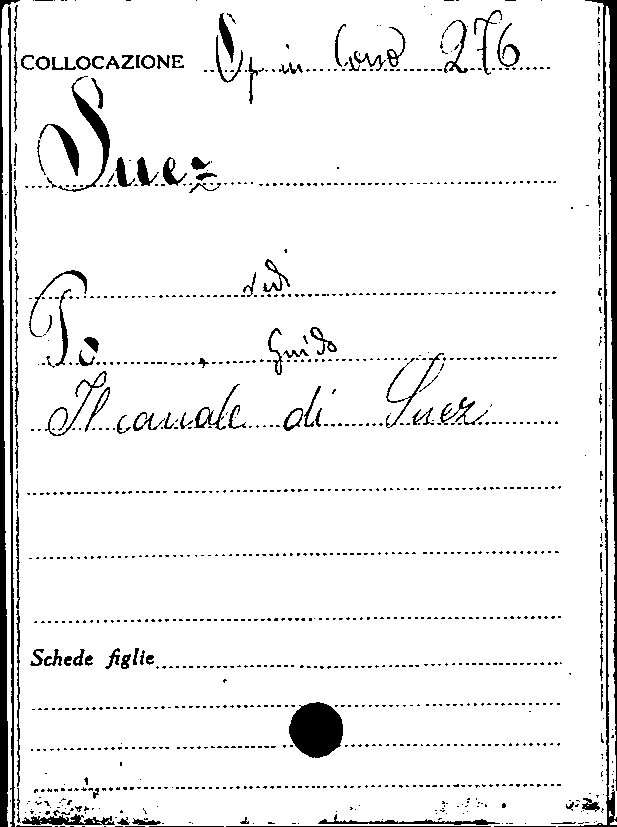 COLLOCAZIONE Op in Corso 276
Suez
vedi
Po , Guido
Il canale di Suez
Schede figlie